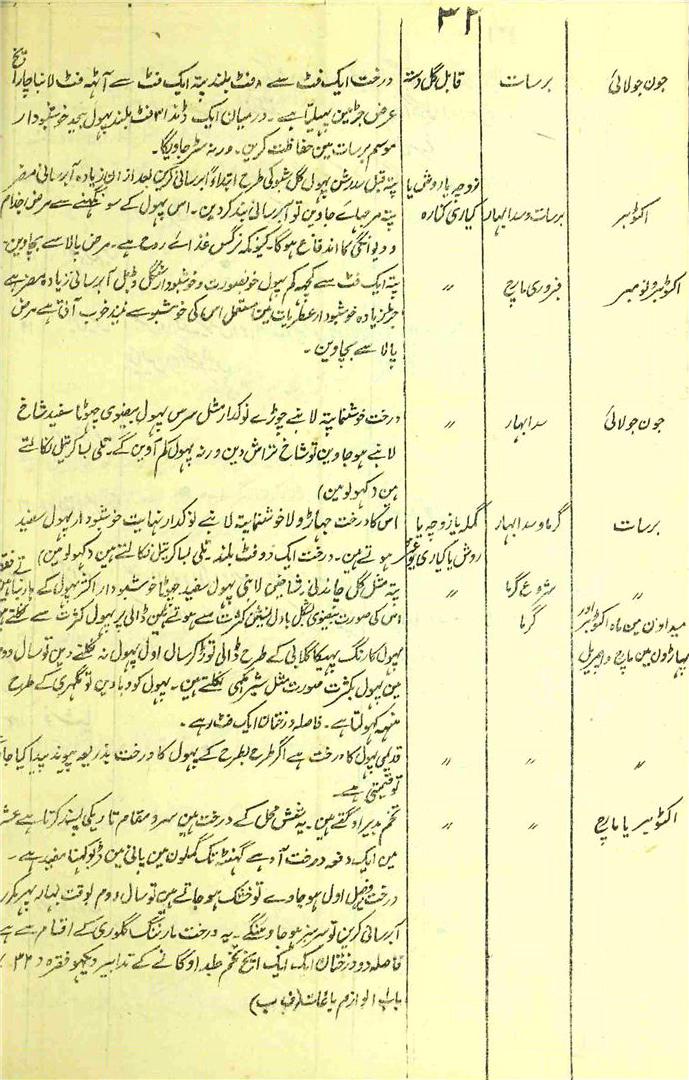 ۳۲
جون جولائی برسات قابل گل دستہ درخت ایک فٹ سے ۸ فٹ بلند پتہ ایک فٹ سے آٹہہ فٹ لانبا چار انچ
عرض جڑمین پہیلتا ہے۔ درمیان ایک ڈنڈا ۳ فٹ بلند پہول بیحد خوشبودار
موسم برسات مین حفاظت کرین۔ ورنہ سڑ جاویگا۔
اکٹوبر برسات و سدابہار زوجہ یا روش یا کیاری کنارہ پتہ قبل سدرشن پہول گل شبو کی طرح ابتداءً آبرسانی کرین بعد ازان زیادہ آبرسانی مضر
پتہ مرجہاے جاوین تو آبرسانی بند کردین۔ اس پہول کے سونگہنے سے مرض جذام
و دیوانگی کا اندفاع ہوگا۔ کیونکہ نرگس غذائے روح ہے۔ مرض پالا سے بچاوین۔
اکٹوبر و نومبر فروری مارچ 〃 پتہ ایک فٹ سے کچہہ کم پہول خوبصورت و خوشبودار سنگل و ڈبل آبرسانی زیادہ مضر ہے
جڑ زیادہ خوشبودار عطریات مین مستعمل اس کی خوشبو سے نیند خوب آتی ہے مرض
پالا سے بچاوین۔
جون جولائی سدابہار 〃 درخت خوشنما پتہ لانبے چوڑے نوکدار مثل سرس پہول بیضوی چہوٹا سفید شاخ
لانبے ہوجاوین تو شاخ تراش دین ورنہ پہول کم آوین گے۔ تلی بساکر تیل نکالتے
ہین دکہولومین)
برسات گرما و سدابہار گملہ یا زوجہ یا روش یا کیاری اس کا درخت جہاڑولا خوشنما پتہ لانبے نوکدار نہایت خوشبودار پہول سفید
ہوتے ہین۔ درخت ایک دو فٹ بلند۔ تلی بساکر تیل نکالتے ہین دکہولومین)
〃 شروع گرما 〃 پتہ مثل گل چاندنی شاخین لانبی پہول سفید چہوٹا خوشبودار اکثر پہول کے ہار بناتے ہین
میداون مین ماہ اکٹوبر اور گرما اس کی صورت بیضوی بشکل بادل کثرت سے ہوتے ہین ڈالی پر پہول کثرت سے نکلتے
پہاڑون مین مارچ و اپریل پہول کا رنگ پہیکا گلابی کے طرح ڈالی توڑ کر سال اول پہول نہ نکلتے دین تو سال دوم
مین پہول بکثرت صورت مثل شیر مکہی نکلتے ہین۔ پہول کو دبادین تو گلہری کے طرح
منہہ کہولتا ہے۔ فاصلہ درختان ایک فٹ رہے۔
〃 〃 〃 قدیمی پہول کا درخت ہے اگر طرح بطرح کے پہول کا درخت بذریعہ پیوند پیدا کیا جائے
تو قیمتی ہے۔
اکٹوبر یا مارچ 〃 〃 تخم بدیر اوگتے ہین۔ یہ شش محل کے درخت ہین سرد مقام تاریکی پسند کرتا ہے
مین ایک دفعہ درخت آدہے گہنٹہ تک گملون مین پانی مین ڈبو کہنا مفید ہے۔
درخت فصل اول ہوجاوے تو خشک ہوجاتے ہین تو سال دوم بوقت بہار پہر مکرر
آبرسانی کرین تو سرسبز ہوجاوینگے۔ یہ درخت مارننگ گلوری کے اقسام سے ہے
فاصلہ دو درختان ایک ایک انچ تخم جلد اوگانے کے تدابیر دیکہو فقرہ ۳۲
باب الوازم باغات (ف ب)